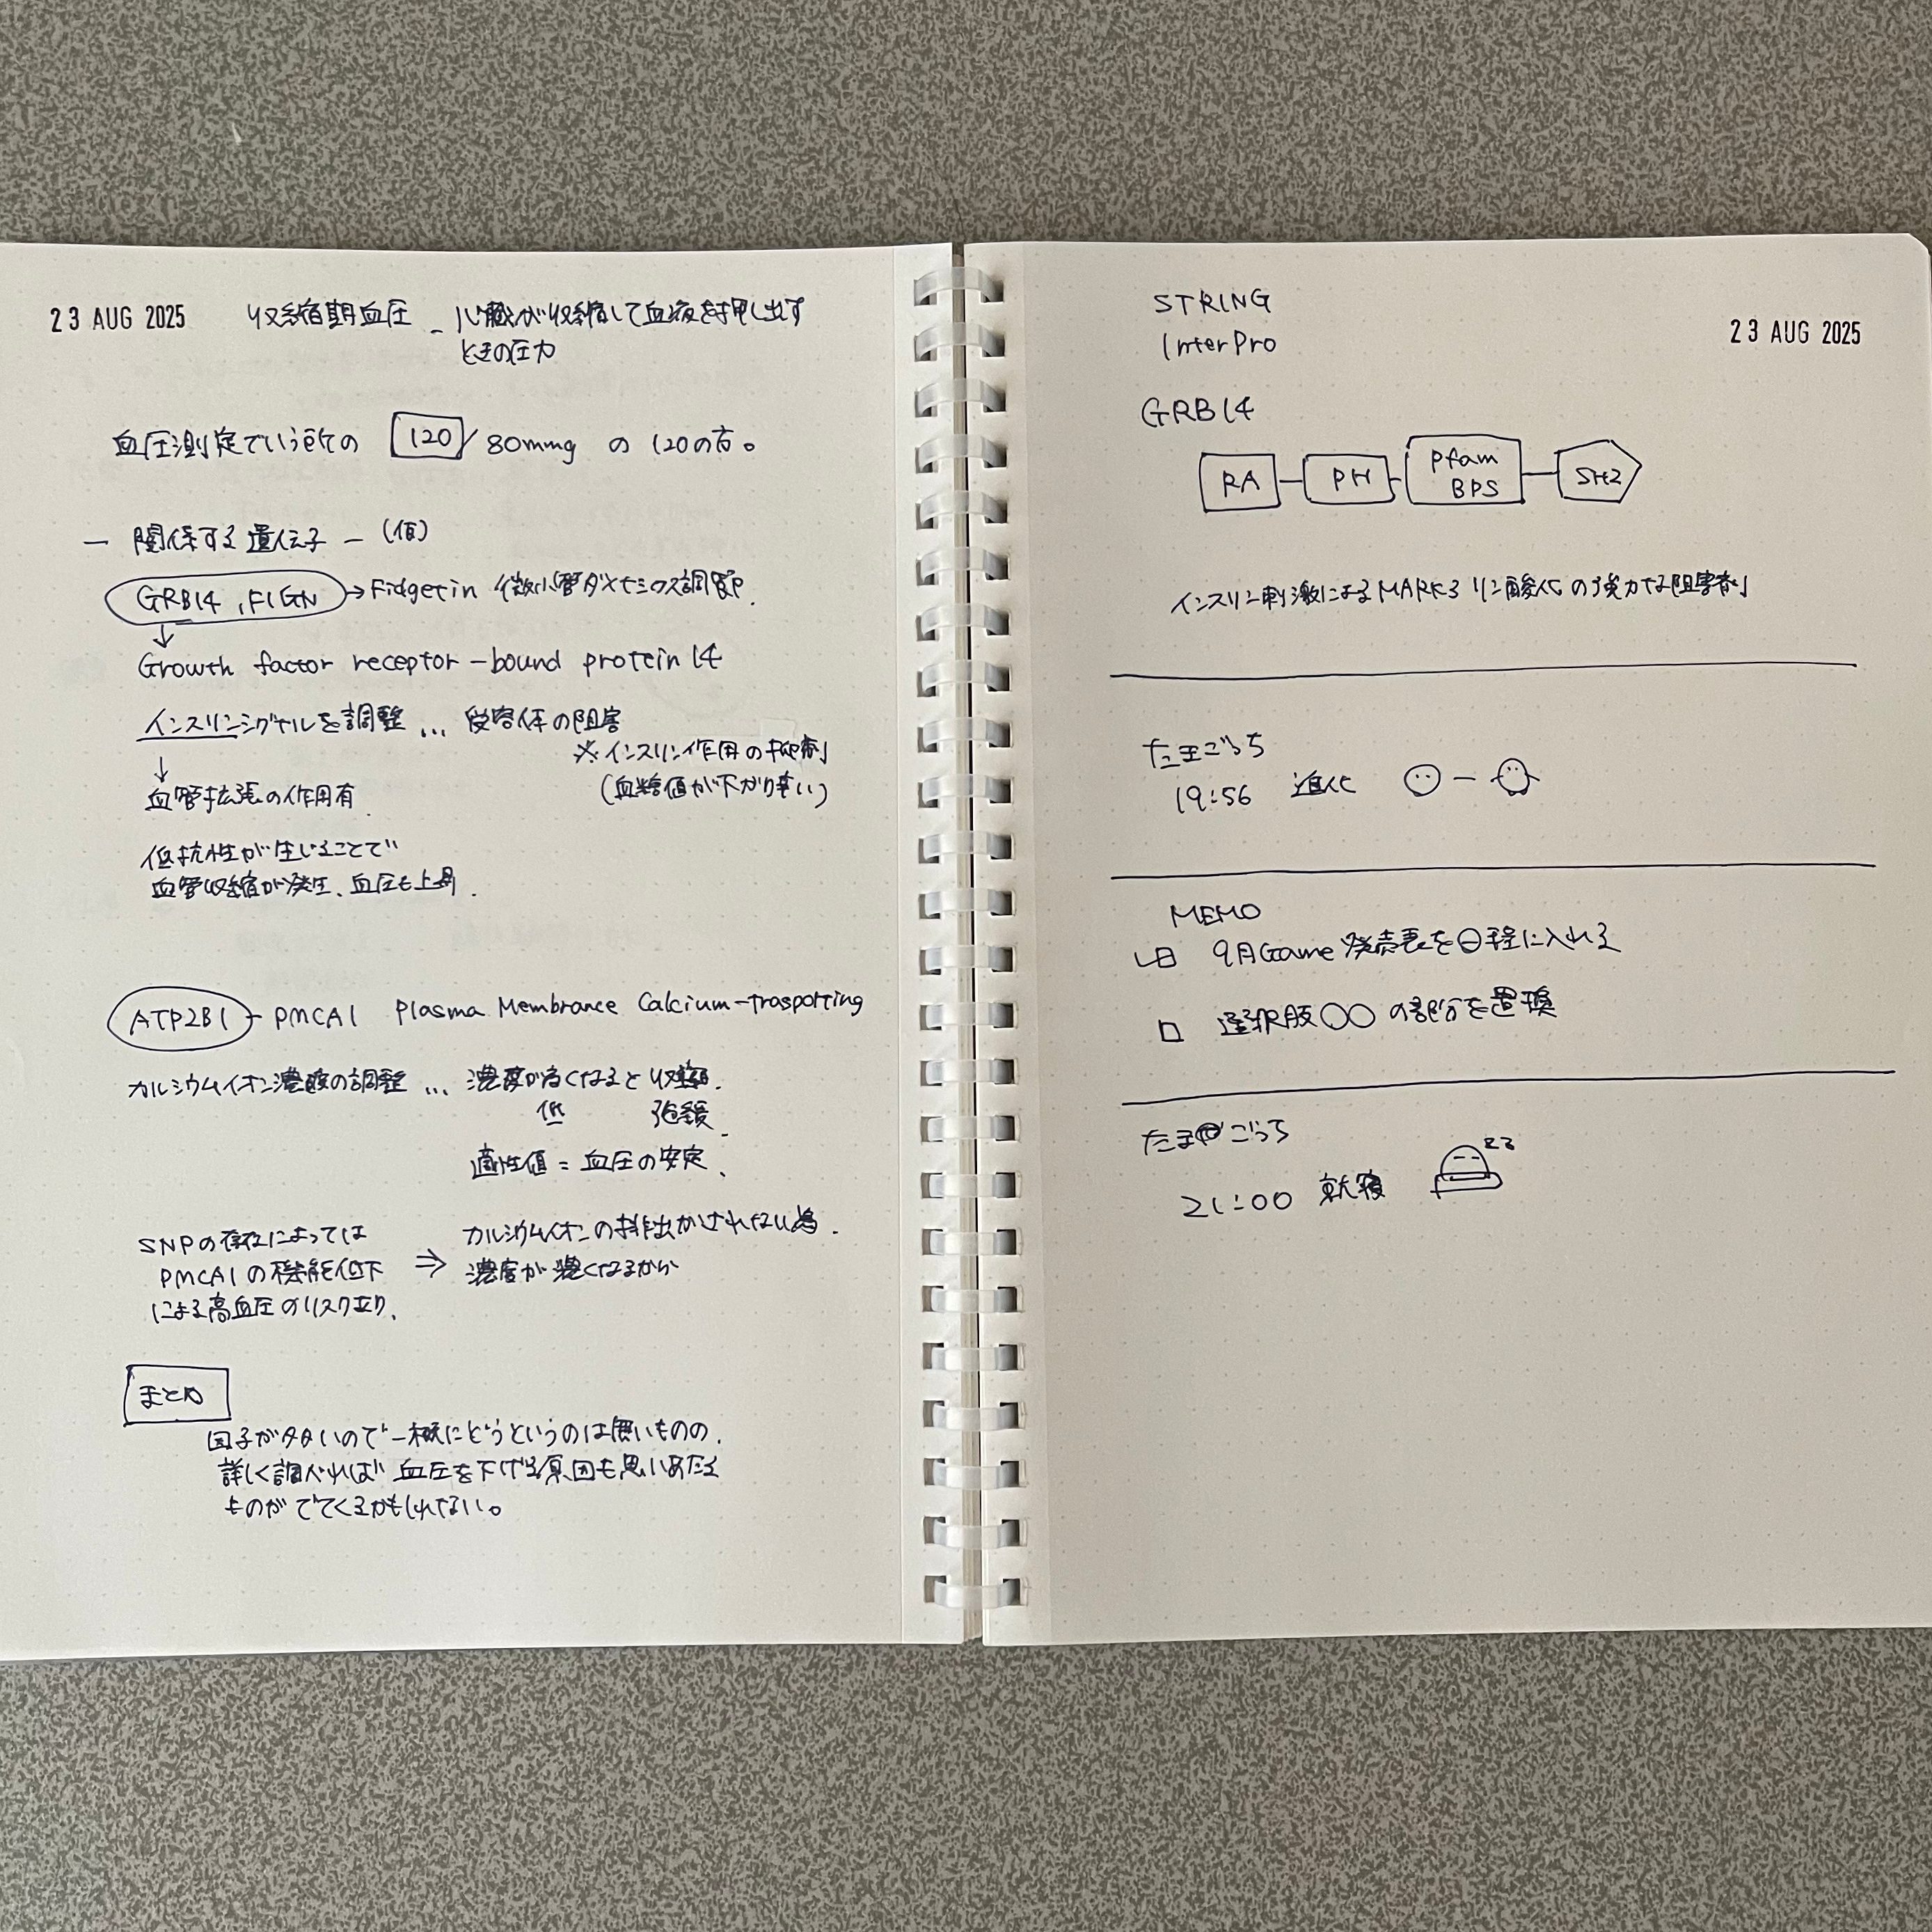 23 AUG 2025
収縮期血圧 - 心臓が収縮して血液を押し出す
ときの圧力
血圧測定でいう所の 120/80mmg の 120の方。
- 関係する遺伝子 - (仮)
GRB14, FIGN → Fidgetin 微小管ダイナミクス調節.
↓
Growth factor receptor-bound protein 14
インスリンシグナルを調整 … 受容体の阻害
※インスリン作用の抑制
(血糖値が下がり辛い)
↓
血管拡張の作用有
低抗性が生じることで
血管収縮が発生、血圧も上昇.
ATP2B1 - PMCA1 Plasma Membrance Calcium-trasporting
カルシウムイオン濃度の調整 … 濃度が高くなると収縮.
低 弛緩.
適性値 = 血圧の安定.
SNPの存在によっては
PMCA1の機能低下
による高血圧のリスク有り.
⇒ カルシウムイオンの排出がされない為.
濃度が濃くなるから
まとめ
因子が多いので一概にどうというのは無いものの.
詳しく調べれば血圧を下げる原因も思いあたる
ものがでてくるかもしれない。
STRING
InterPro
23 AUG 2025
GRB14
RA - PH - Pfam BPS - SH2
インスリン刺激によるMARK3リン酸化の強力な阻害剤
たまごっち
19:56 進化
MEMO
9月Game発売表を日程に入れる
選択肢○○の部分を置換
たまごっち
21:00 就寝 zz